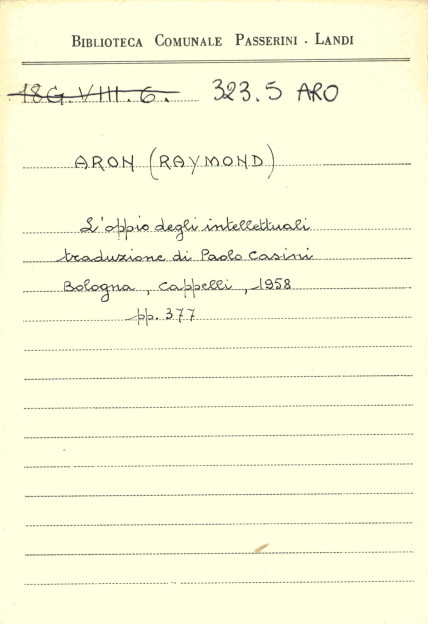 BIBLIOTECA COMUNALE PASSERINI - LANDI
18G. VIII. 6. 323.5 ARO
ARON (RAYMOND)
L'oppio degli intellettuali
traduzione di Paolo Casini
Bologna, Cappelli, 1958
pp. 377